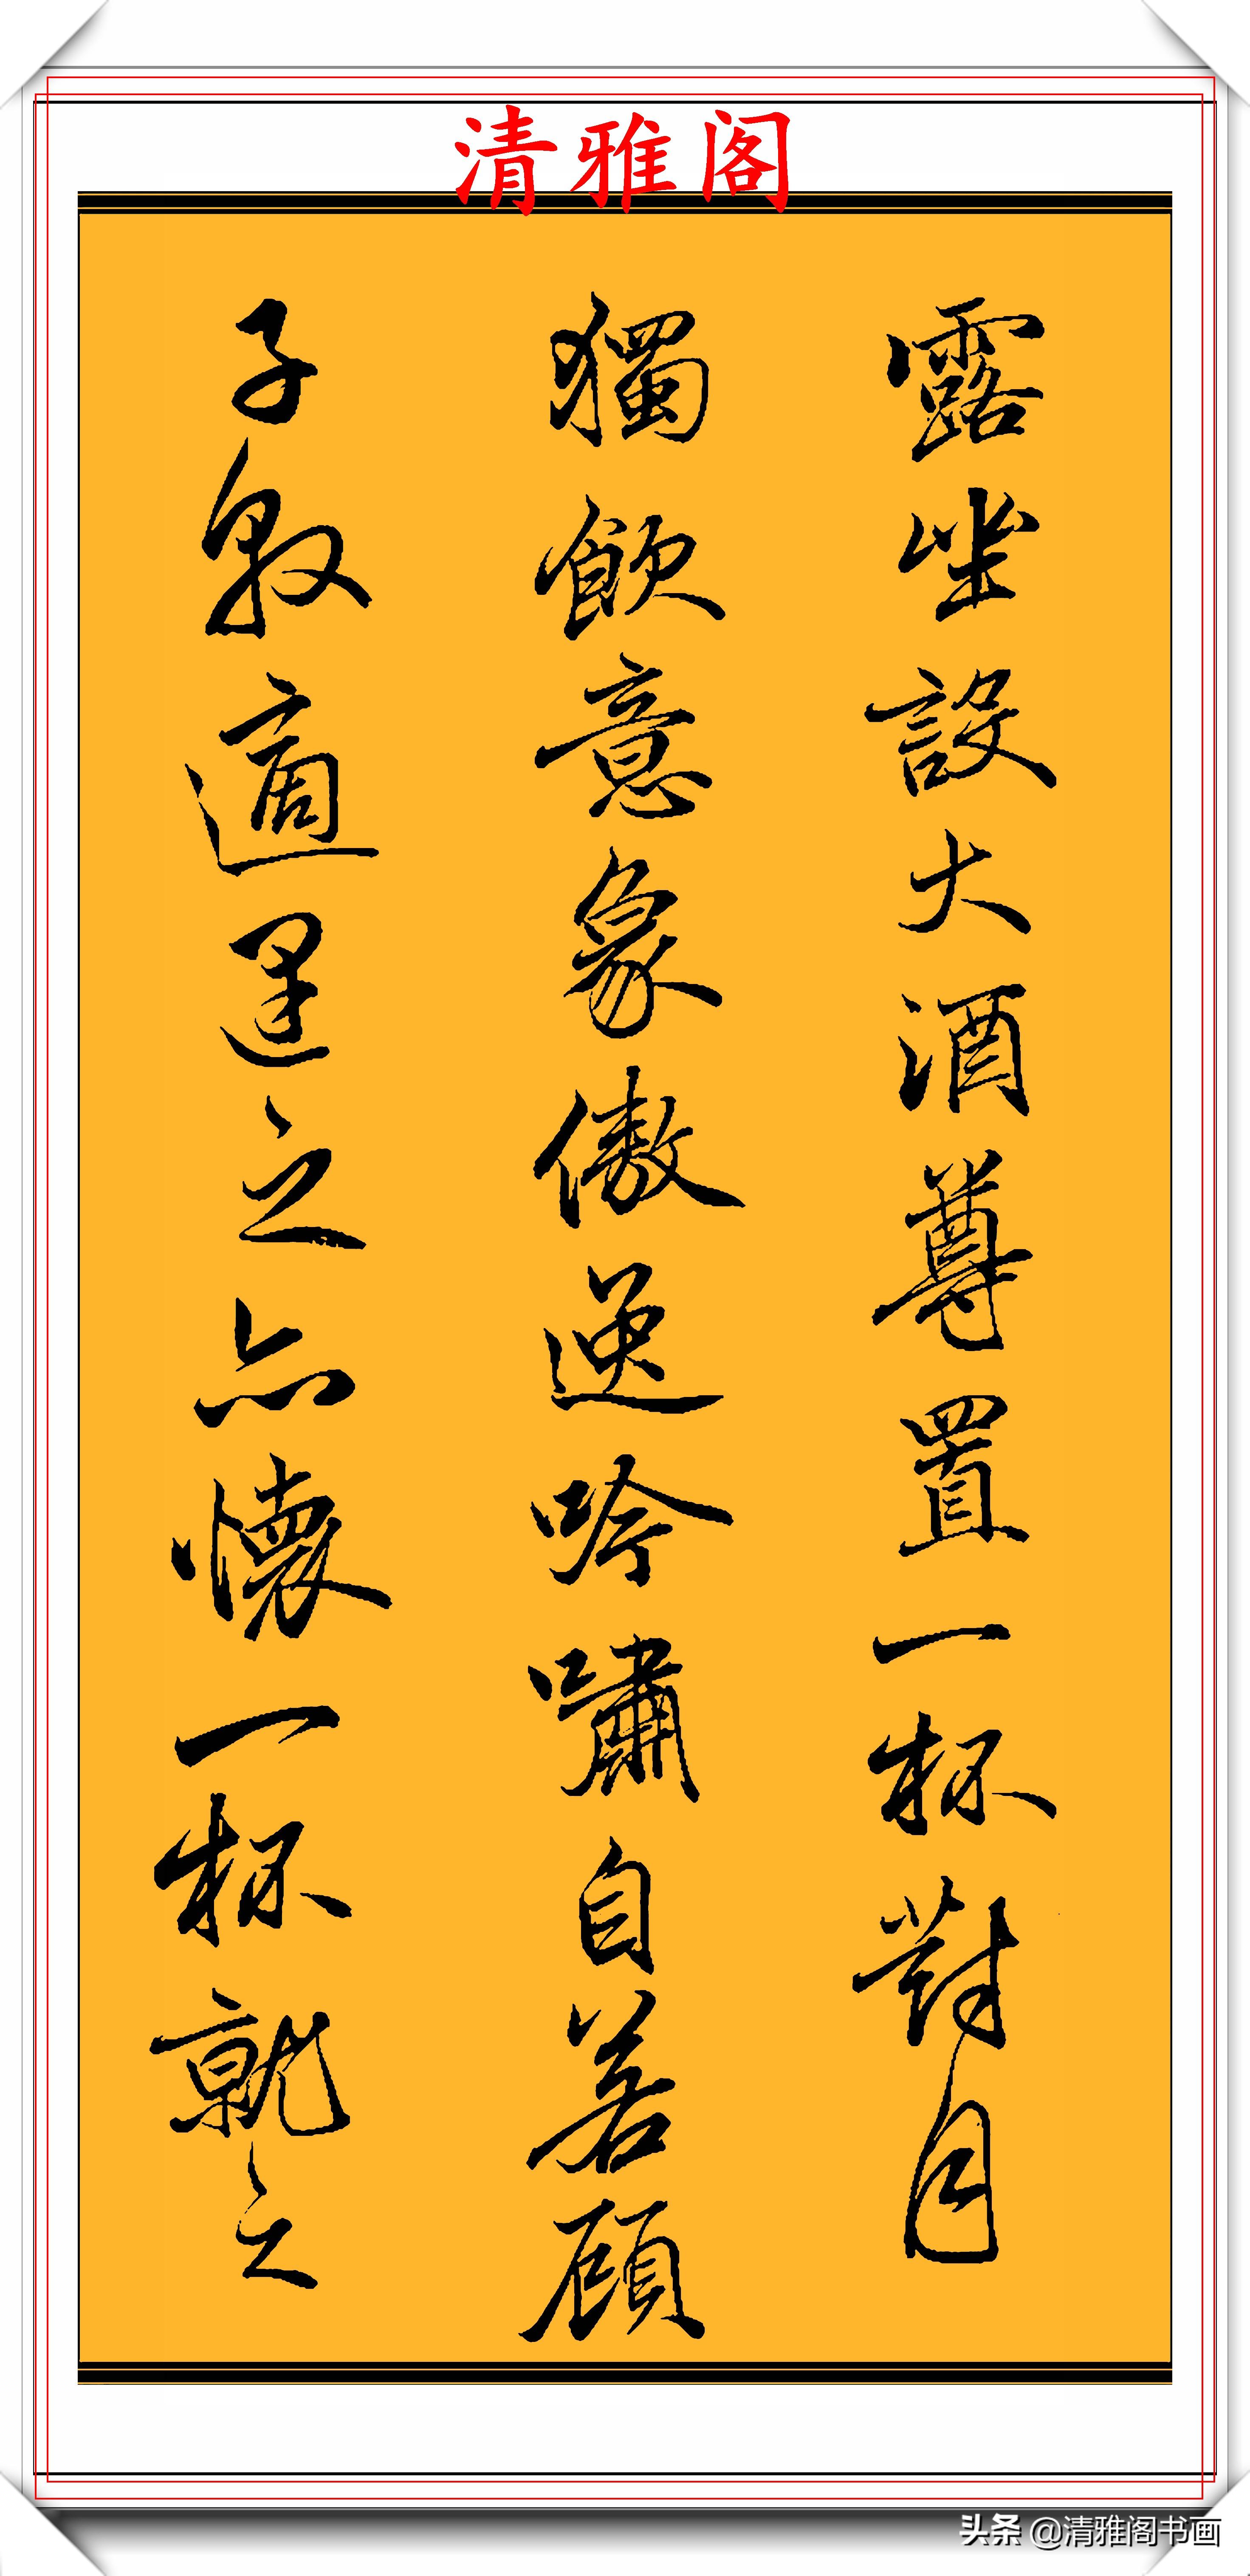 清雅阁
露坐設大酒尊置一杯對月
獨飲意象傲逸吟嘯自若顧
子敦適遇之亦懷一杯就之
头条 @清雅阁书画